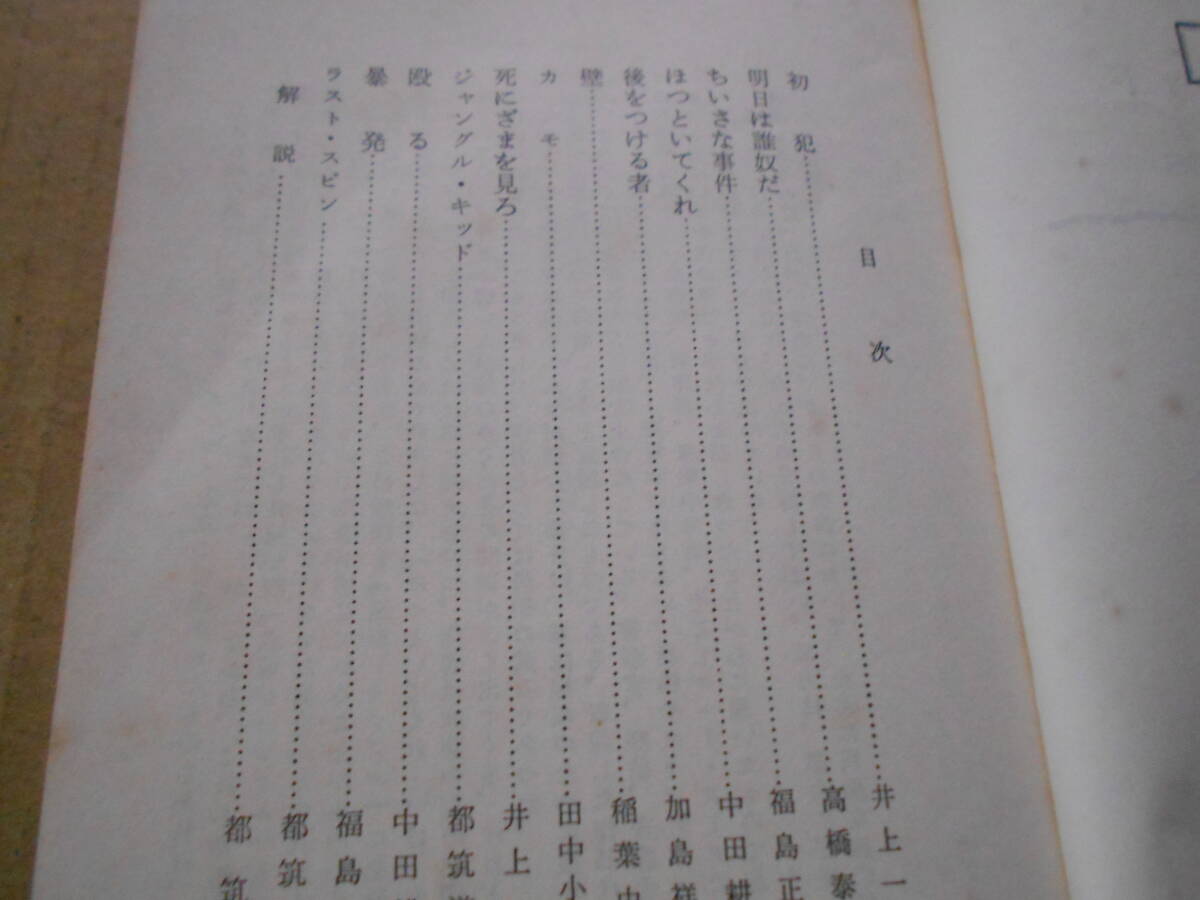 目次
初犯……井上一
明日は誰奴だ……高橋泰
ちいさな事件……福島正
ほつといてくれ……中田耕
後をつける者……加島祥
壁……稲葉由
カモ……田中小
死にざまを見ろ……井上
ジャングル・キッド……都筑
殴る……中田
暴発……福島
ラスト・スピン……都筑
解説……都筑